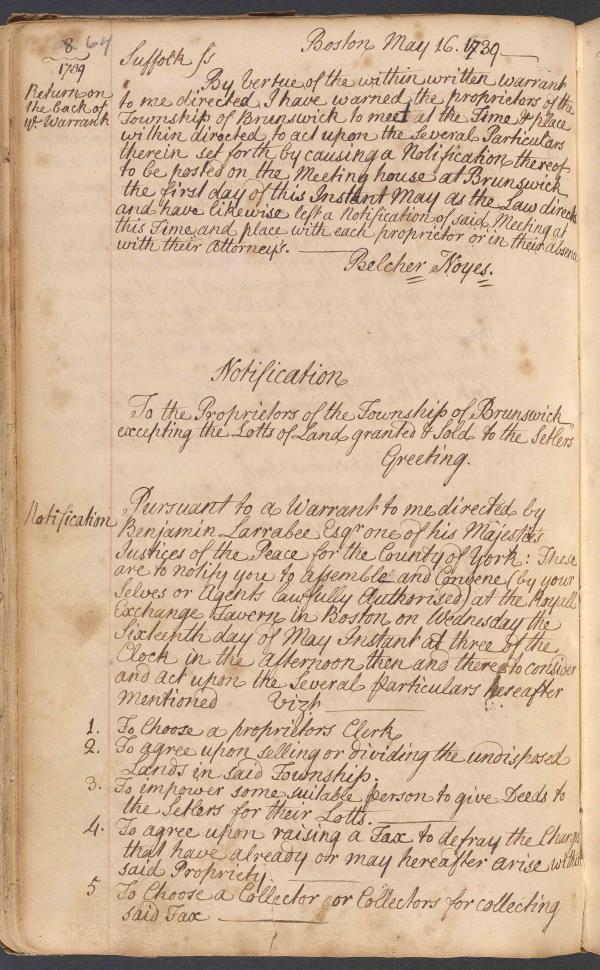 8 64
1739
Boston May 16. 1739
Suffolk ss
Return on
the back of
yᵉ. Warrant
By Vertue of the within written warrant
to me directed, I have warned the proprietors of the
Township of Brunswick to meet at the Time & place
within directed, to act upon the Several Particulars
therein set forth by causing a Notification thereof
to be posted on the Meeting house at Brunswick
the first day of this Instant May as the Law directs
and have likewise left a Notification of said Meeting at
this Time and place with each proprietor or in their absence
with their Attorney's.
Belcher Noyes.
Notification
To the Proprietors of the Township of Brunswick
excepting the Lotts of Land granted & Sold to the Setlers
Greeting.
Notification
Pursuant to a Warrant to me directed by
Benjamin Larrabee Esqʳ one of his Majesties
Justices of the Peace for the County of York: These
are to notify you to assemble and Convene (by your
Selves or Agents lawfully Authorised) at the Royall
Exchange Tavern in Boston on Wednesday the
Sixteenth day of May Instant at three of the
Clock in the afternoon then and there to consider
and act upon the Several particulars hereafter
Mentioned Vizt.
1. To Choose a proprietors Clerk
2. To agree upon selling or dividing the undisposed
Lands in said Township.
3. To impower some suitable person to give Deeds to
the Setlers for their Lotts.
4. To agree upon raising a Tax to defray the Charge
that have already or may hereafter arise within
said Propriety.
5 To Choose a Collector or Collectors for collecting
said Tax